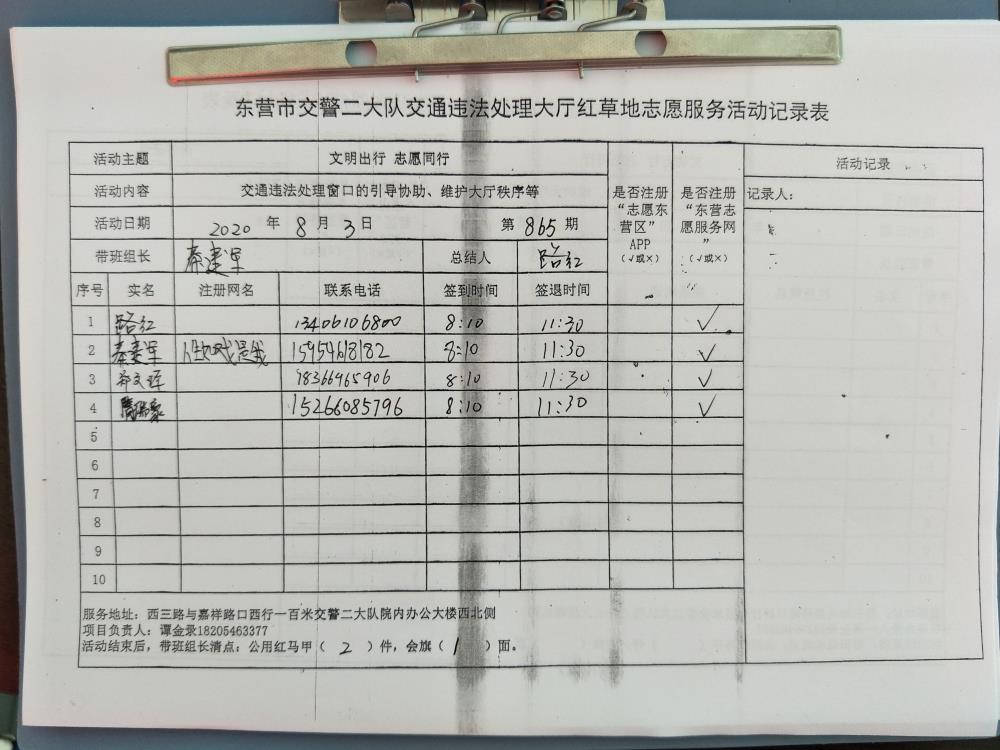 东营市交警二大队交通违法处理大厅红草地志愿服务活动记录表
活动主题 文明出行 志愿同行
活动内容 交通违法处理窗口的引导协助、维护大厅秩序等
活动日期 2020 年 8 月 3 日 第 865 期
带班组长 秦建军 总结人 路红
是否注册“志愿东营区”APP（√或×）
是否注册“东营志愿服务网”（√或×）
活动记录
记录人：
序号 实名 注册网名 联系电话 签到时间 签退时间
1 路红 13406106800 8:10 11:30 √
2 秦建军 15954618182 8:10 11:30 √
3 18366965906 8:10 11:30 √
4 15266085796 8:10 11:30 √
5
6
7
8
9
10
服务地址：西三路与嘉祥路口西行一百米交警二大队院内办公大楼西北侧
项目负责人：谭金录18205463377
活动结束后，带班组长清点：公用红马甲（ 2 ）件，会旗（ 1 ）面。